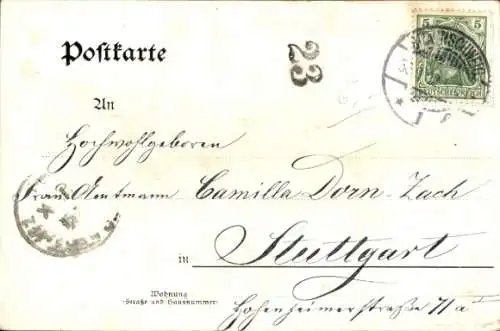 Postkarte
23
5
DEUTSCHES REICH
An
Hochwohlgeboren
Frau Amtmann Camilla Dorn-Zach
in Stuttgart
Wohnung
(Straße und Hausnummer)
Hohenheimerstraße 71 a I